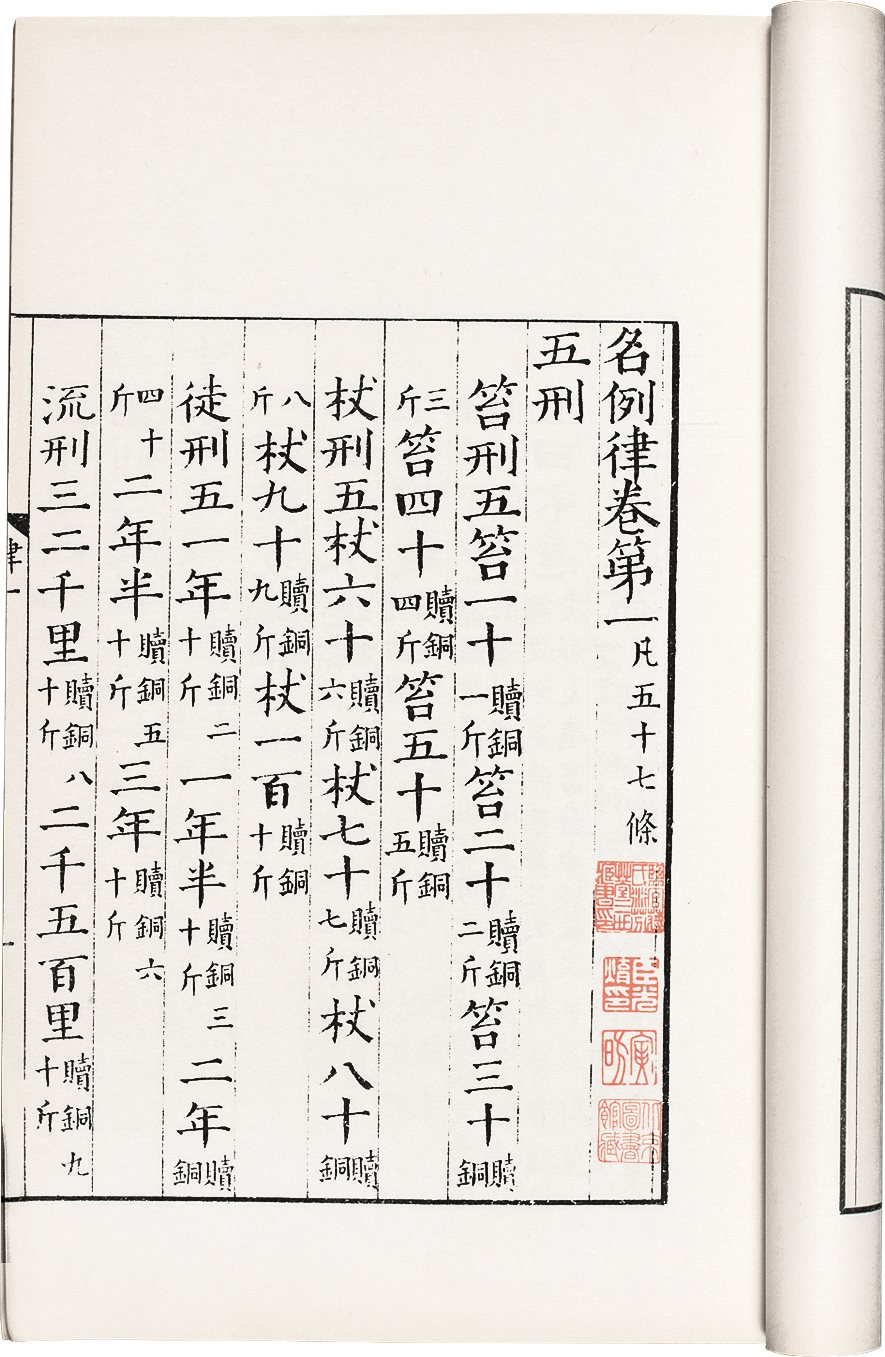 名例律卷第一凡五十七條
鹽官蔣氏衍芬艸堂三世藏書印
臣光焴印
寅昉
北京圖書館藏
五刑
笞刑五笞一十贖銅一斤笞二十贖銅二斤笞三十贖銅
三斤笞四十贖銅四斤笞五十贖銅五斤
杖刑五杖六十贖銅六斤杖七十贖銅七斤杖八十贖銅
八斤杖九十贖銅九斤杖一百贖銅十斤
徒刑五一年贖銅二十斤一年半贖銅三十斤二年贖銅
四十斤二年半贖銅五十斤三年贖銅六十斤
流刑三二千里贖銅八十斤二千五百里贖銅九十斤
律一
一